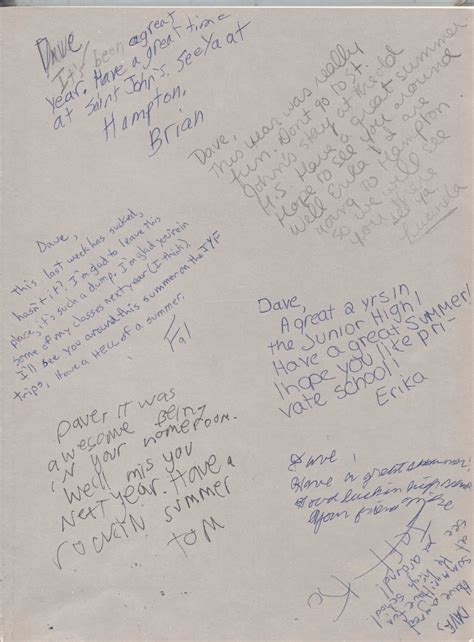 Dave,
It's been a great
year. Have a great time
at Saint John's. See ya at
Hampton,
Brian
Dave,
This year was really
fun. Don't go lost.
John's stay at the old
H.S. Have a great summer
Hope to see you around
Well Erika & I are
going to Hampton
so we will see
you there
Dave,
This last week has sucked,
hasn't it? I'm glad to leave this
place, it's such a dump. I'm glad you're in
some of my classes next year (I think).
I'll see you around this summer on the JYF
trips, Have a HELL of a summer.
Dave,
A great 2 yrs in
the Junior High!
Have a great SUMMER!
I hope you like pri-
vate school!
Erika
Dave, it was
awesome being
in your homeroom.
We'll mis you
Next year. Have a
rockin summer
tom
Dave,
Have a great summer!
Good luck in high school
Your friend
DAVE,
have a great
summer
see
around
the high school